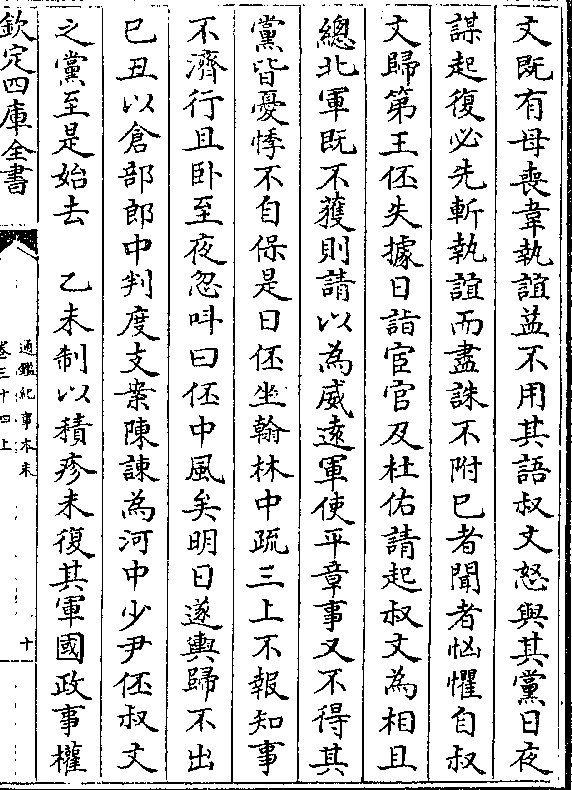 文既有母喪韋執誼益不用其語叔文怒與其黨日夜
謀起復必先斬執誼而盡誅不附已者聞者恟懼自叔
文歸第王伾失據日詣宦官及杜佑請起叔文為相且
總北軍既不獲則請以為威遠軍使平章事又不得其
黨皆憂悸不自保是日伾坐翰林中疏三上不報知事
不濟行且卧至夜忽呌曰伾中風矣明日遂輿歸不出
已丑以倉部郎中判度支案陳諫為河中少尹伾叔文
之黨至是始去　乙未制以積疹未復其軍國政事權
欽定四庫全書
通鑑紀事本末
卷三十四上
十